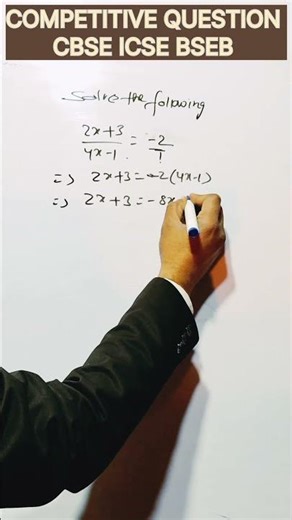 COMPETITIVE QUESTION
CBSE ICSE BSEB
Solve the following
2x+3/4x-1 = -2/1
=> 2x+3 = -2(4x-1)
=> 2x+3 = -8x